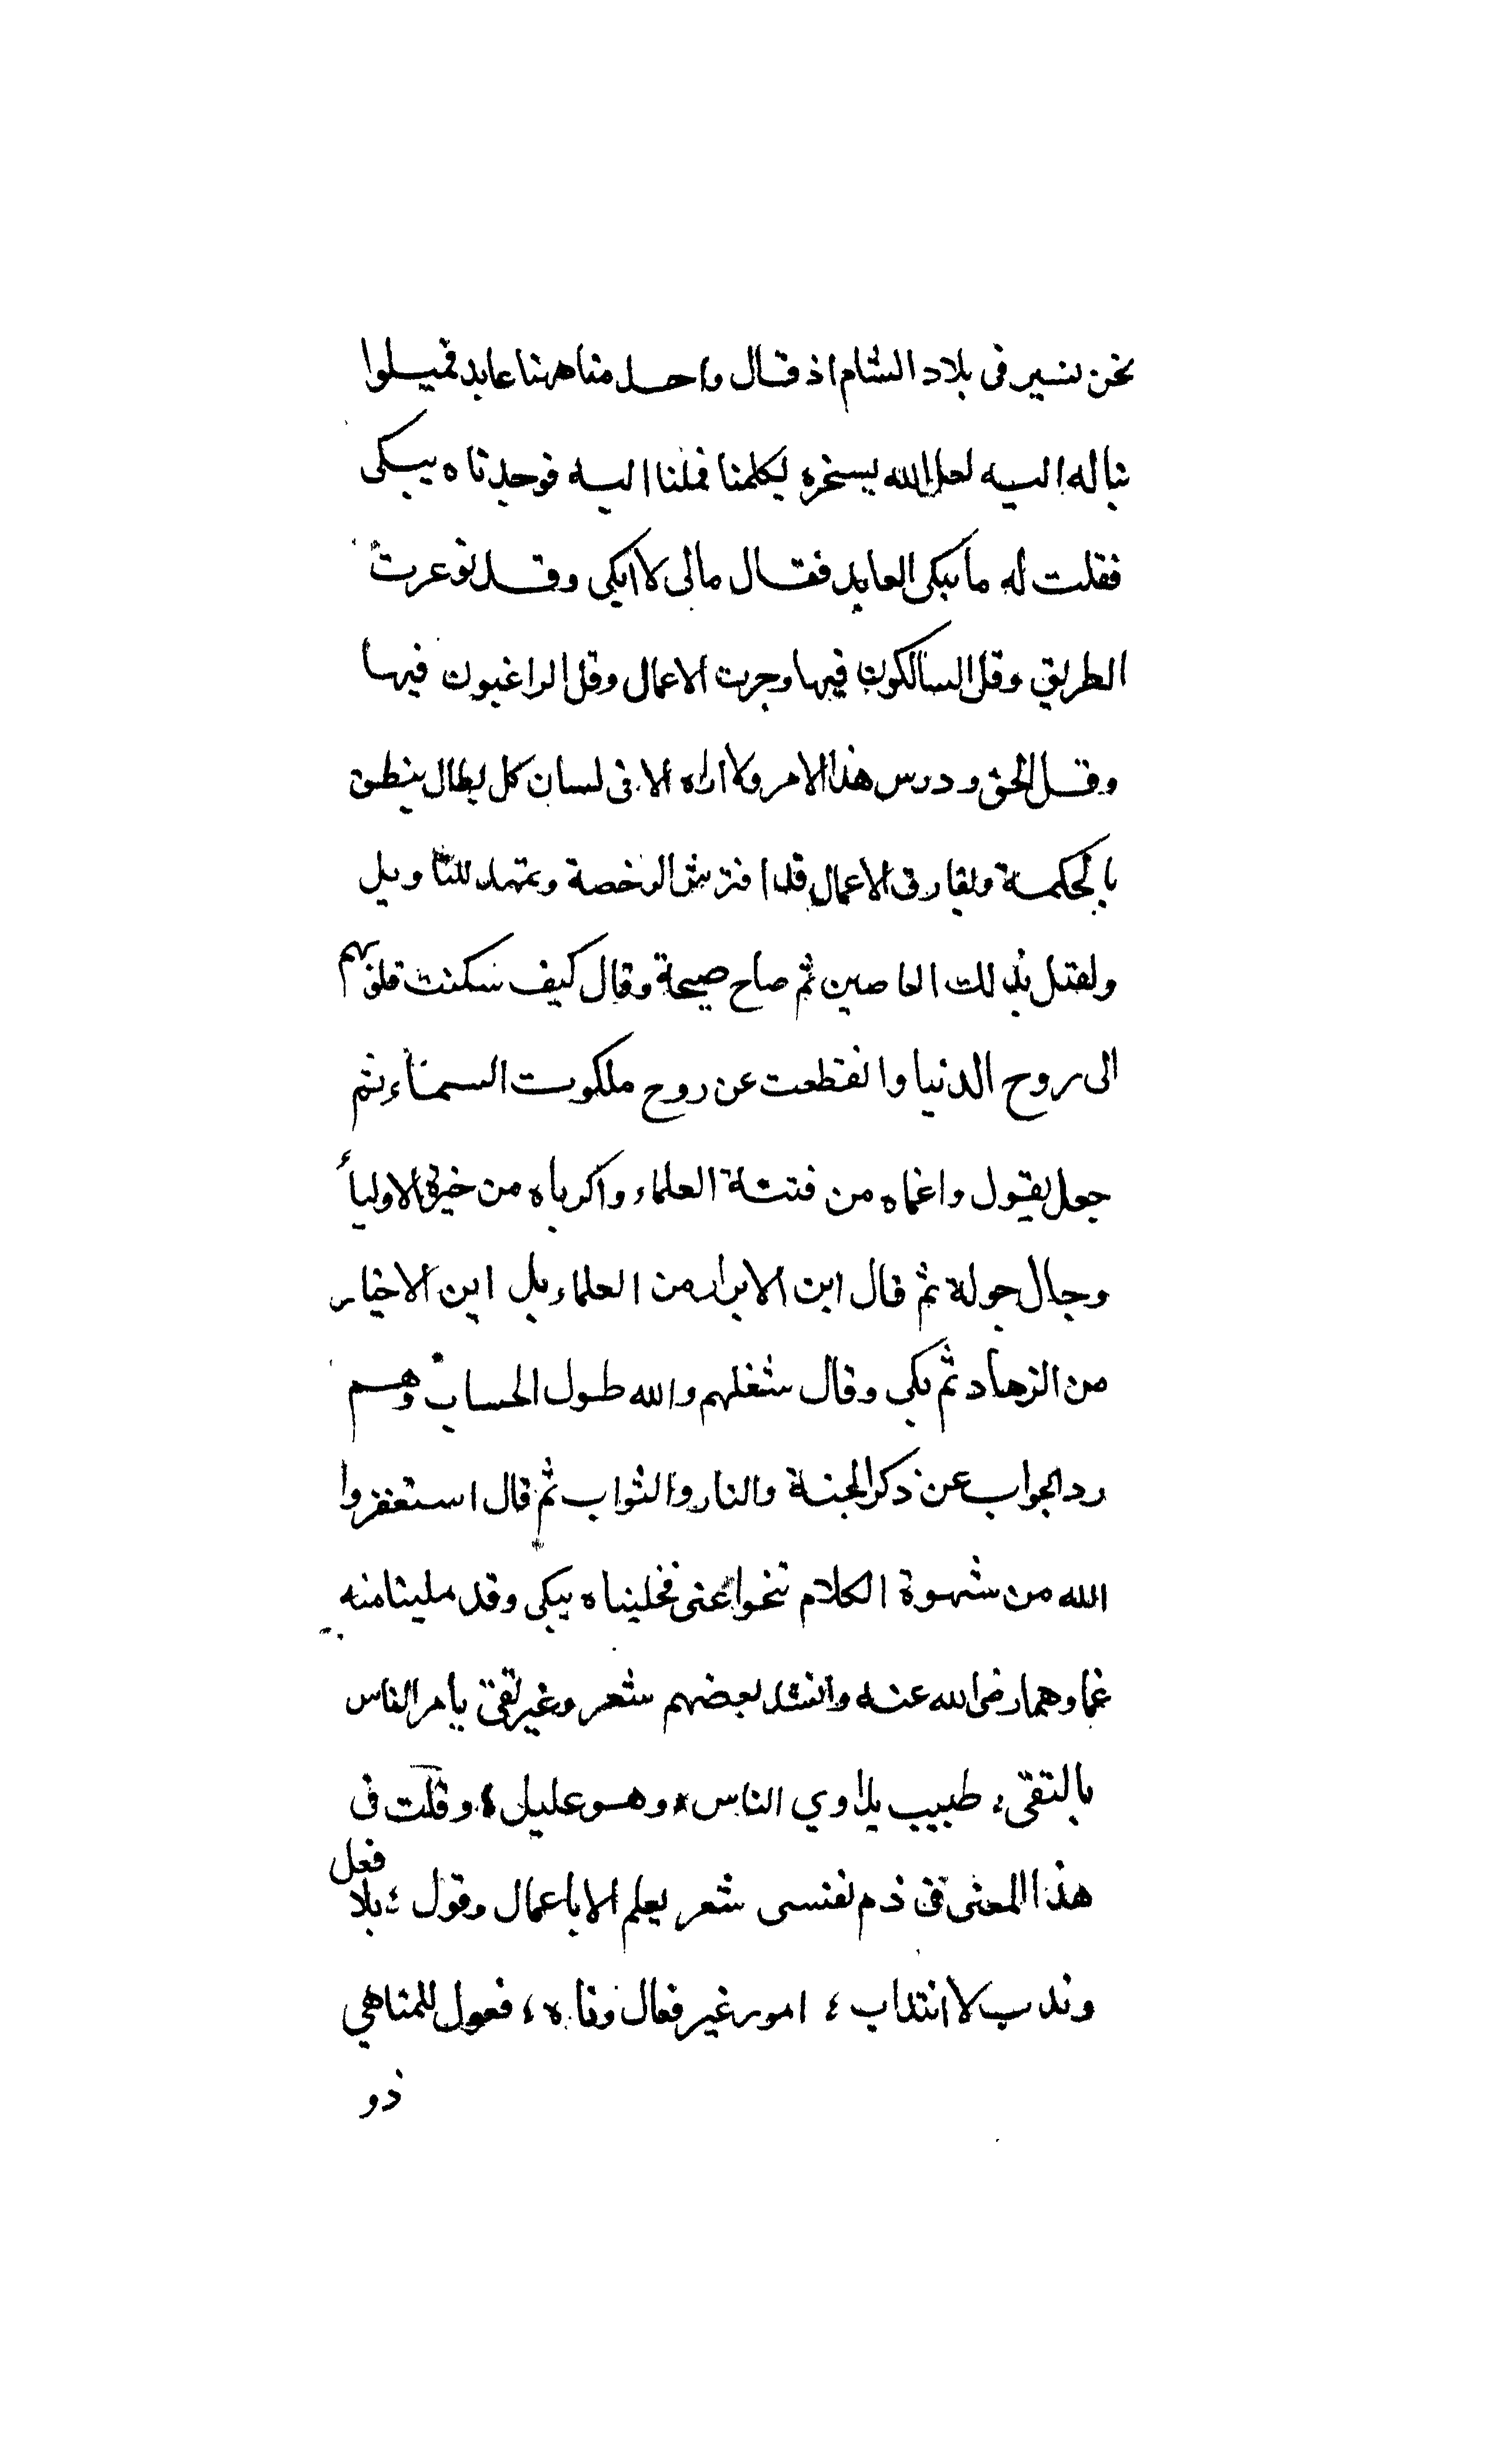 نحن نسير فى بلاد الشام اذ قال واحد منا ههنا عابد فميلوا
بنا له اليه لعل الله يسخره يكلمنا فملنا اليه فوجدناه يبكى
فقلت له ما يبكى العابد فقال مالى لا ابكى وقد توعرت
الطريق وقل السالكون فيها وجرت الاعمال وقل الراغبون فيها
وقل الحق ودرس هذا الامر ولا اراه الا فى لسان كل بطال ينطق
بالحكمة ويفارق الاعمال قد افترش الرخصة وتمهد للتاويل
ولعتل بذلك العاصين ثم صاح صيحة وقال كيف سكنت قلوبهم
الى روح الدنيا وانقطعت عن روح ملكوت السماء ثم
جعل يقول واغماه من فتنة العلماء واكرباه من حيرة الاولياء
وجال جولة ثم قال اين الابرار من العلماء بل اين الاخيار
من الزهاد ثم بكى وقال شغلهم والله طول الحساب وهم
رد الجواب عن ذكر الجنة والنار والثواب ثم قال استغفروا
الله من شهوة الكلام تنحوا عنى فخليناه يبكى وقد ملينا منه
غما وهما رضى الله عنه وانشد بعضهم شعر وغير تقى يامر الناس
بالتقى، طبيب يداوي الناس* وهو عليل، وقلت فى
هذا المعنى فى ذم نفسى شعر يعلم الاباعمال وقول، بلا فعل
وندب لا انتداب، امور غير فعال وناه، فعول للمناهي
ذو